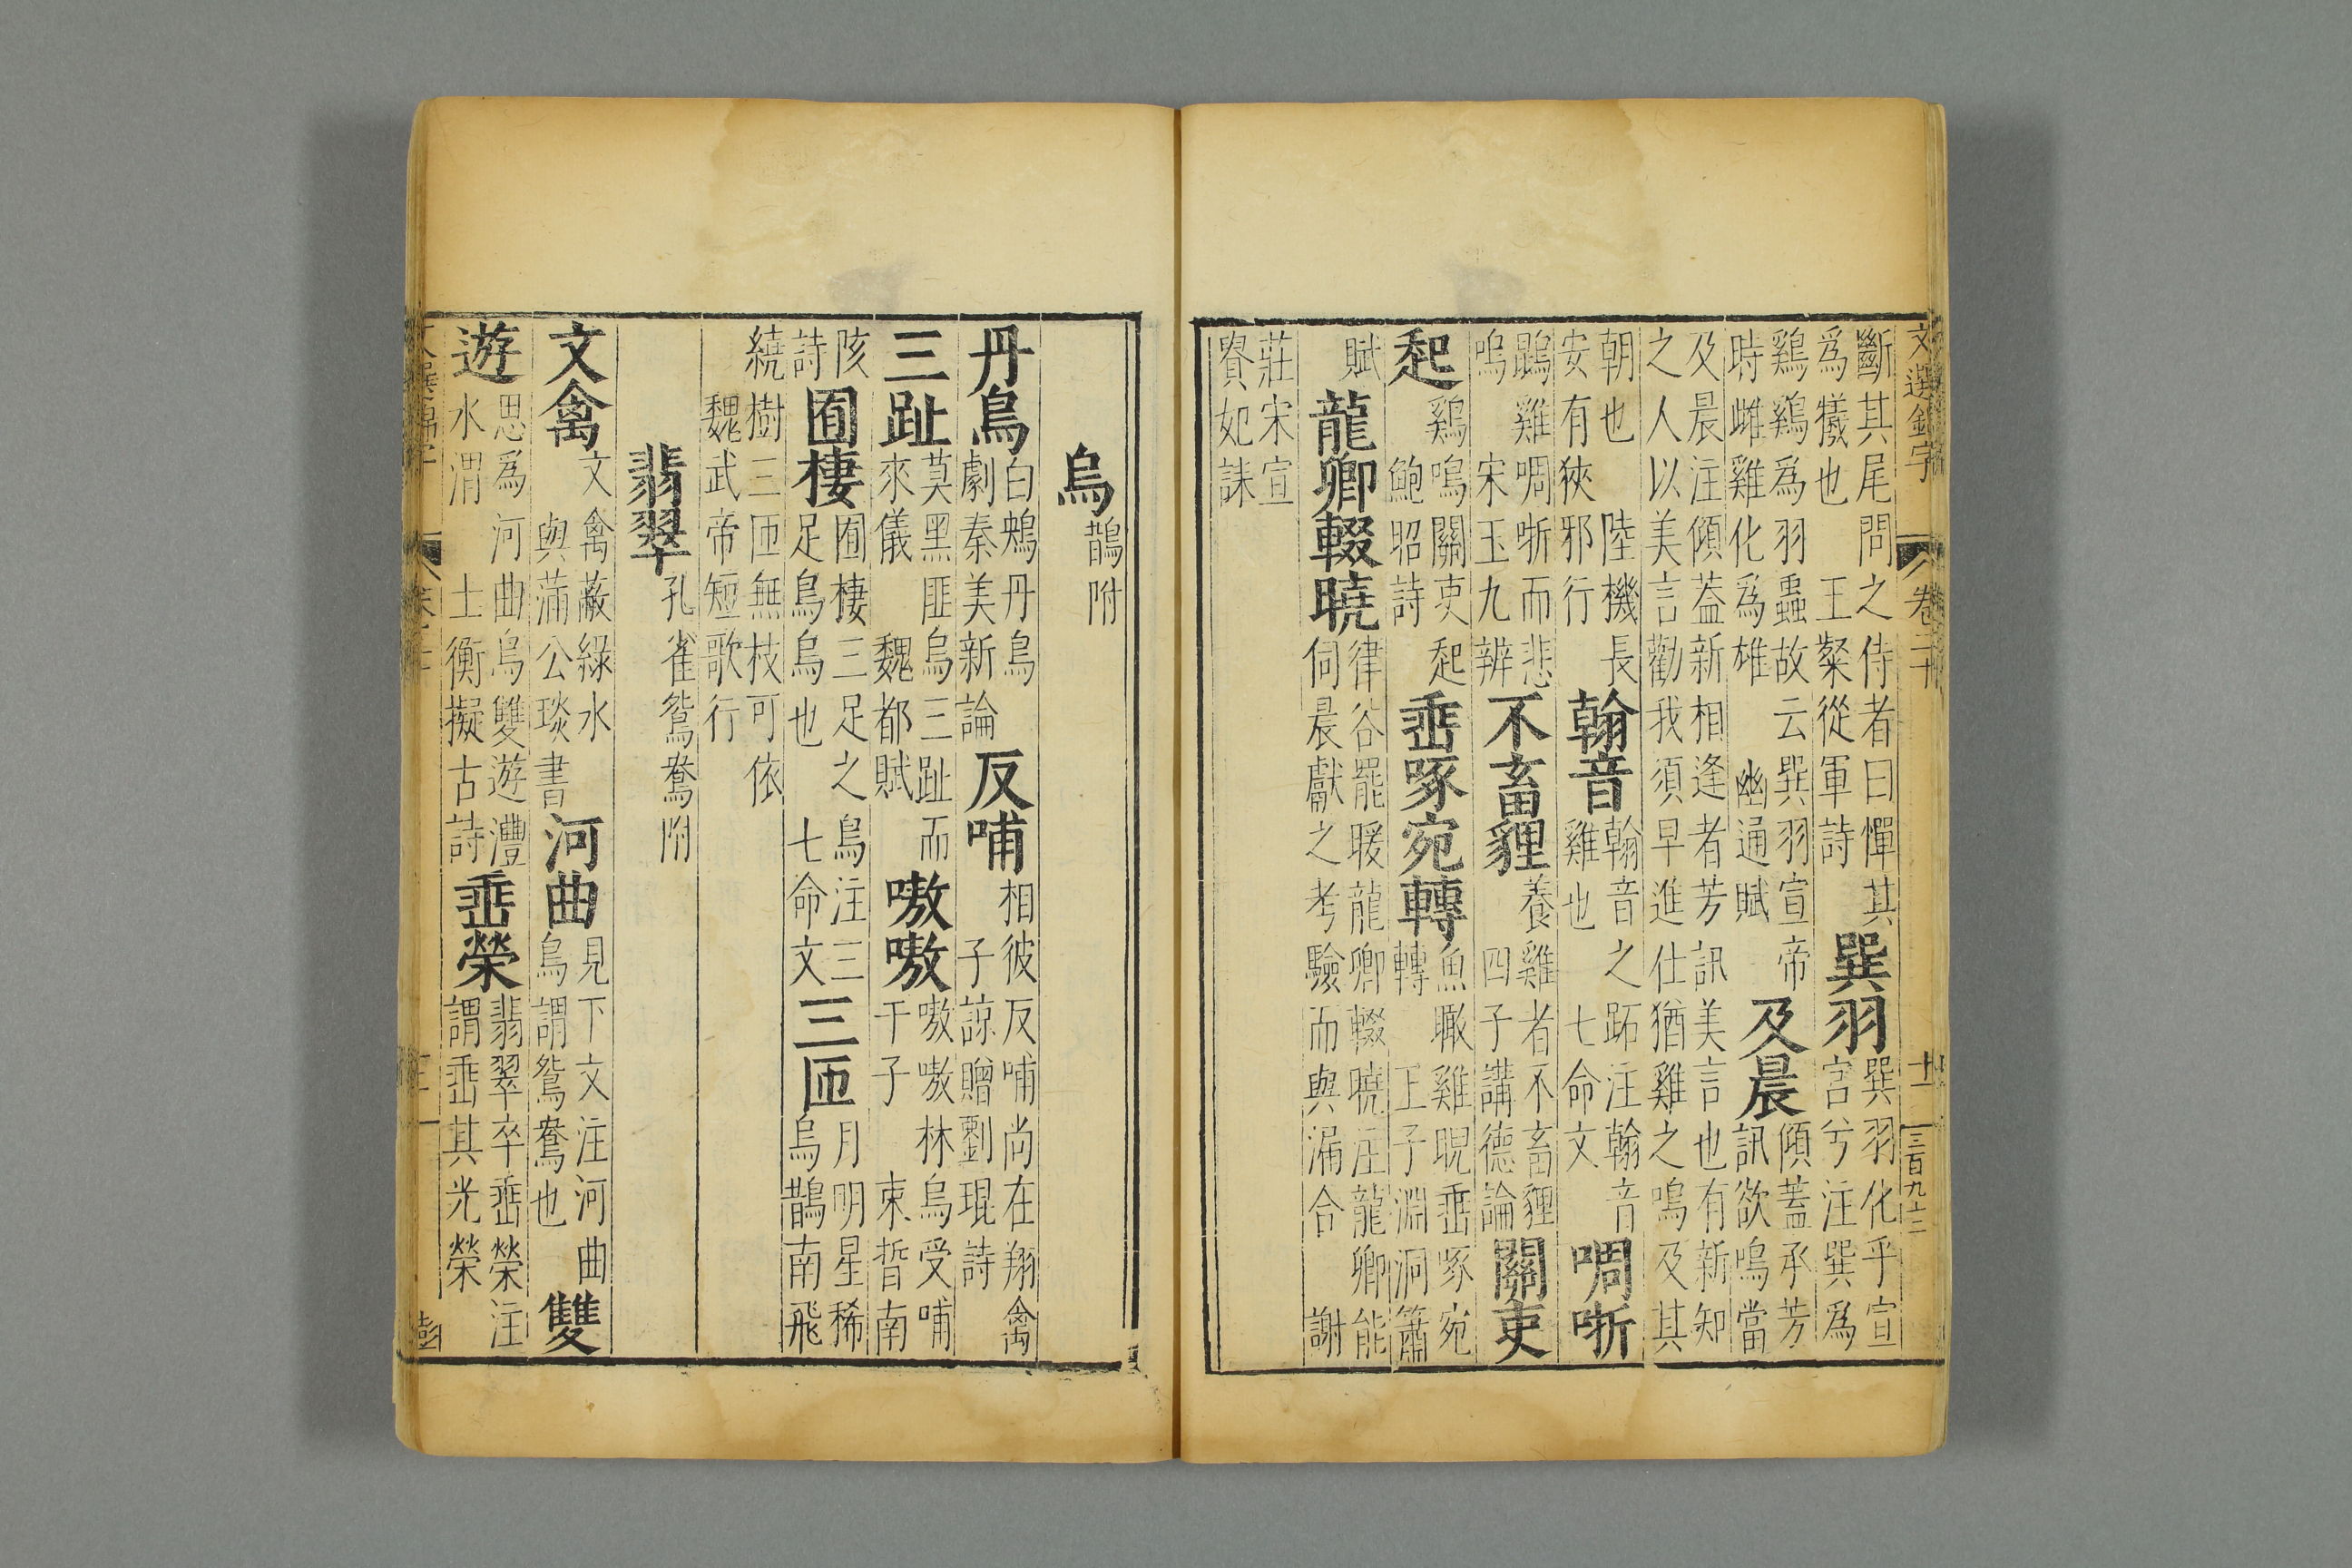 文選錦字 卷二十 十一 三百九十二
斷其尾問之侍者曰憚其
爲犧也 王粲從軍詩
巽羽
巽羽化乎宣
宮兮注巽爲
鷄鷄爲羽蟲故云巽羽宣帝
時雌雞化爲雄 幽通賦
及晨
傾蓋承芳
訊欲鳴當
及晨注傾葢新相逢者芳訊美言也有新知
之人以美言勸我須早進仕猶雞之鳴及其
朝也 陸機長
安有狹邪行
翰音
翰音之跖注翰音
雞也 七命文
啁哳
鵾雞啁哳而悲
鳴 宋玉九辨
不畜貍
養雞者不畜貍
四子講德論
關吏
起
鷄鳴關吏起
鮑昭詩
垂啄宛轉
魚瞰雞睨垂啄宛
轉 王子淵洞簫
賦
龍卿輟曉
律谷罷暖龍卿輟曉注龍卿能
伺晨獻之考驗而與漏合 謝
莊宋宣
貴妃誄
烏
鵲附
丹烏
白鴆丹烏
劇秦美新論
反哺
相彼反哺尚在翔禽
子諒贈劉琨詩
三趾
莫黑匪烏三趾而
來儀 魏都賦
嗷嗷
嗷嗷林烏受哺
于子 束晳南
陔
詩
囿棲
囿棲三足之烏注三
足烏烏也 七命文
三匝
月明星稀
烏鵲南飛
繞樹三匝無枝可依
魏武帝短歌行
翡翠
孔雀鴛鴦附
文禽
文禽蔽綠水
與蒲公琰書
河曲
見下文注河曲
烏謂鴛鴦也
雙
遊
思爲河曲鳥雙遊灃
水湄 士衡擬古詩
垂榮
翡翠卒垂榮注
謂垂其光榮
卷二十